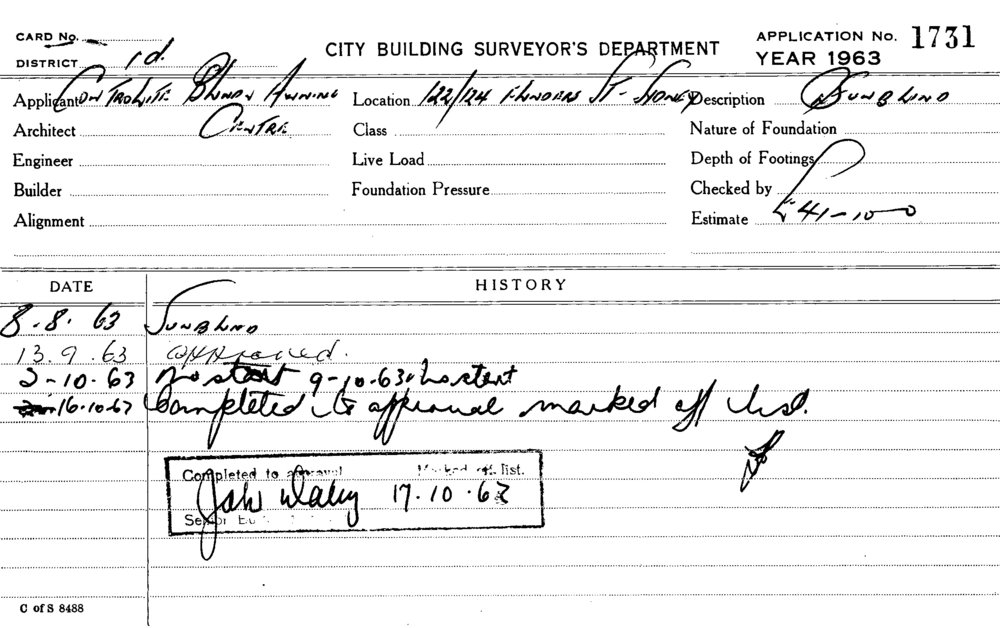 CARD No.
DISTRICT 1d.
CITY BUILDING SURVEYOR'S DEPARTMENT
APPLICATION No. 1731
YEAR 1963
Applicant CONTROLITE BLIND & AWNING
CENTRE
Location 122/124 FLINDERS ST - SYDNEY
Description SUNBLIND
Architect
Class
Nature of Foundation
Engineer
Live Load
Depth of Footings
Builder
Foundation Pressure
Checked by
Alignment
Estimate £41-10-0
DATE
HISTORY
8.8.63 SUNBLIND
13.9.63 approved.
2-10.63 No start 9-10.63 No start
16.10.63 Completed to approval marked off list.
Completed to approval Marked off list.
17.10.63
Senior
C of S 8488